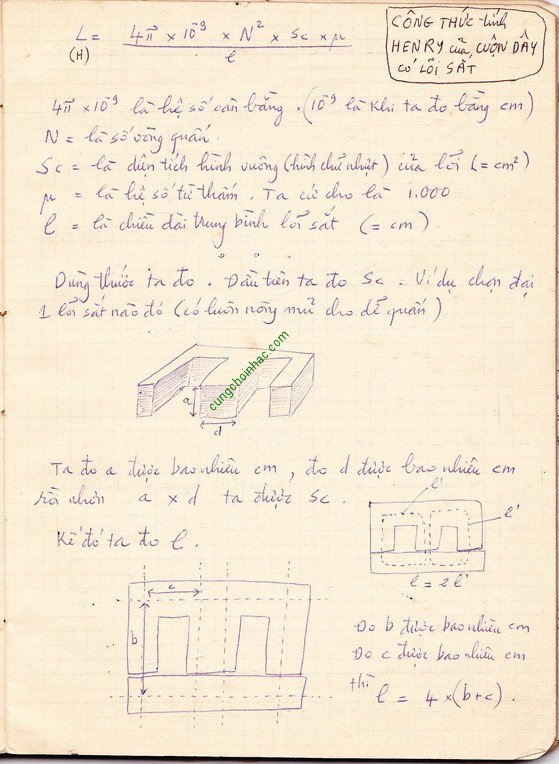 L = 4π × 10⁻⁹ × N² × Sc × μ / l
(H)
CÔNG THỨC tính
HENRY của CUỘN DÂY
CÓ LỖI SẮT
4π × 10⁻⁹ là hệ số cân bằng. (10⁻⁹ là khi ta đo bằng cm)
N = là số vòng quấn.
Sc = là diện tích hình vuông (hình chữ nhật) của lõi (= cm²)
μ = là hệ số từ thẩm. Ta cứ cho là 1.000
l = là chiều dài trung bình lõi sắt (= cm).
Dùng thước ta đo. Đầu tiên ta đo Sc = Ví dụ chọn đại
1 lõi sắt nào đó (có luôn nòng mũ cho dễ quấn)
a
d
cungchoinhac.com
Ta đo a được bao nhiêu cm, đo d được bao nhiêu cm
rồi nhơn a × d ta được Sc.
Kế đó ta đo l.
l'
l'
l = 2l'
c
b
Đo b được bao nhiêu cm
Đo c được bao nhiêu cm
thì l = 4 × (b+c).